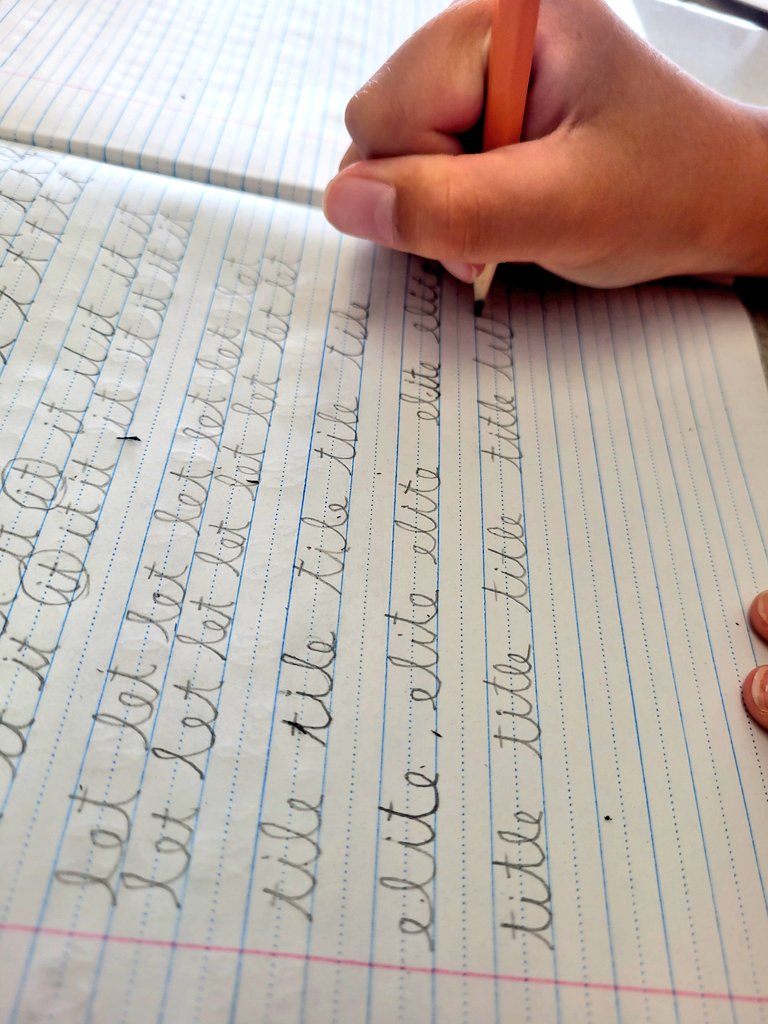 it it it it it it it
it it it it it it it it
let let let let let let let let
let let let let let let let let
tile tile tile tile tile
elite, elite elite elite elite
title title title title tit